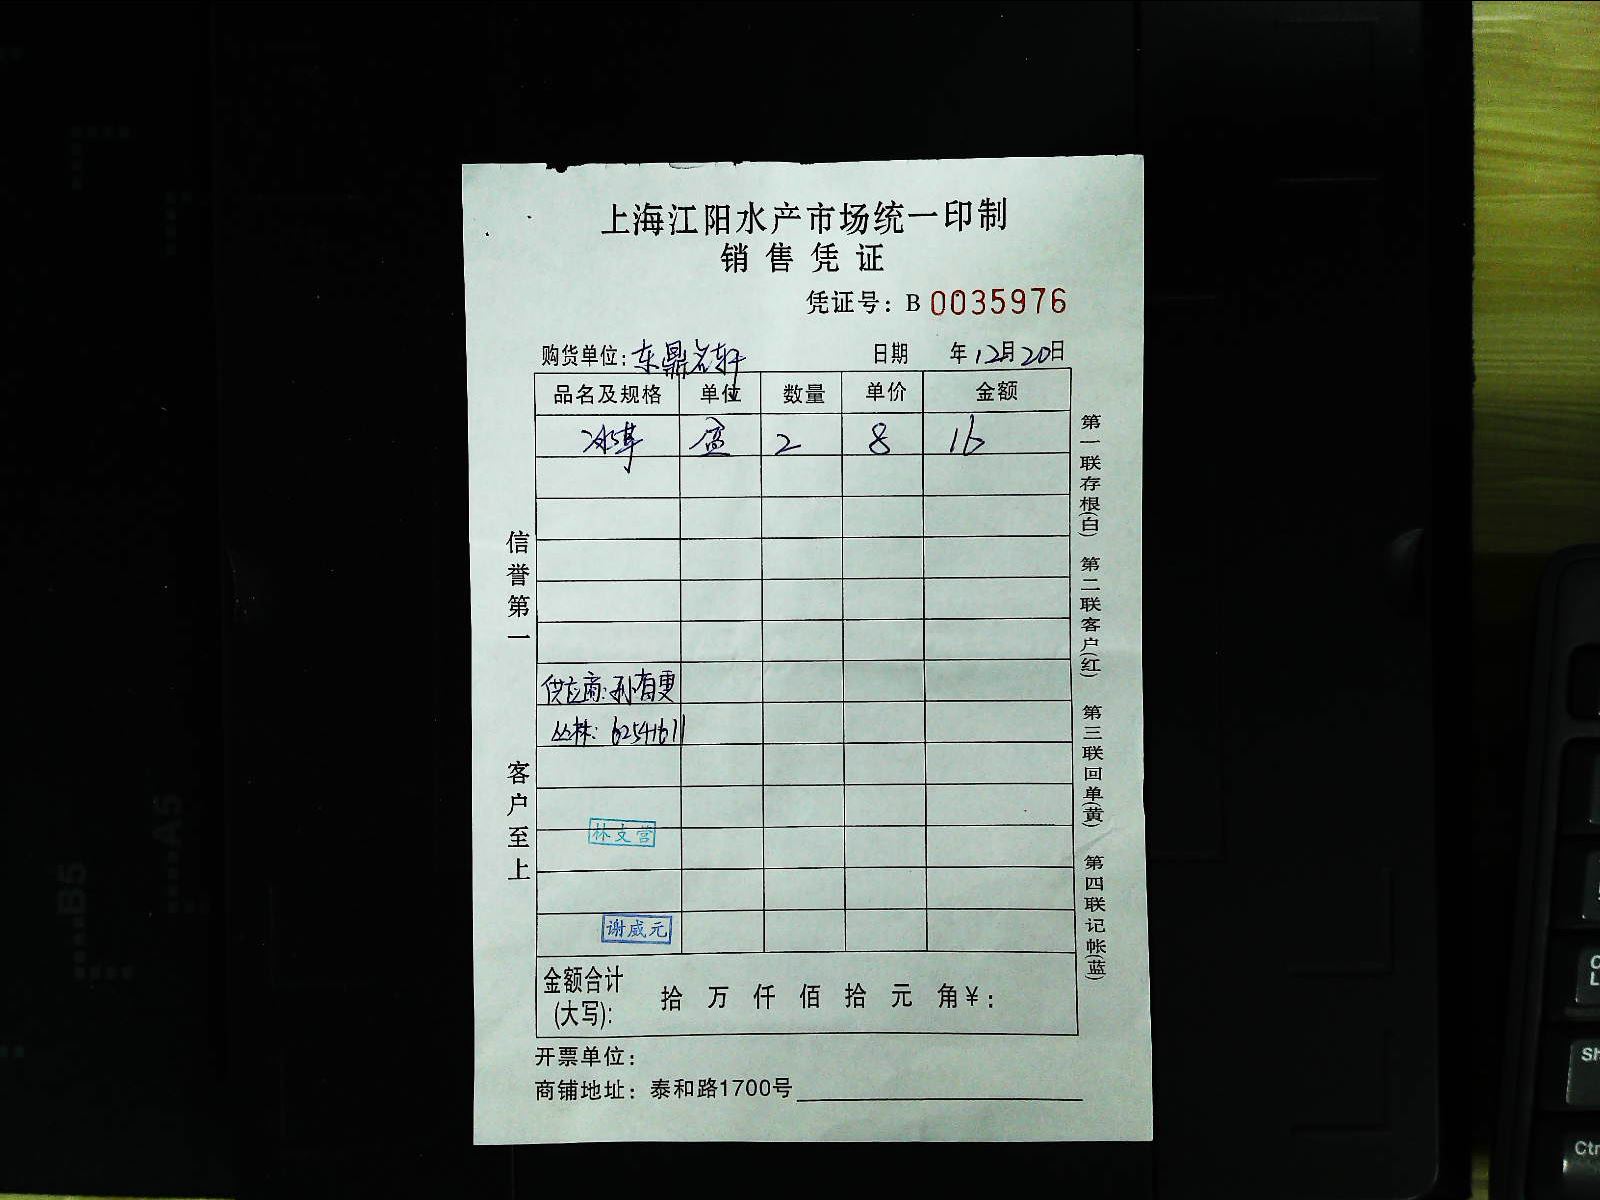 上海江阳水产市场统一印制
销售凭证
凭证号：B 0035976
购货单位：东鼎名轩 日期 年12月20日
品名及规格 单位 数量 单价 金额
盒 2 8 16
供应商：孙有更
丛林：62541611
林文营
谢威元
金额合计(大写)： 拾 万 仟 佰 拾 元 角￥：
开票单位：
商铺地址：泰和路1700号
信誉第一 客户至上
第一联存根(白) 第二联客户(红) 第三联回单(黄) 第四联记帐(蓝)
B5
A5
Sh
Ctr